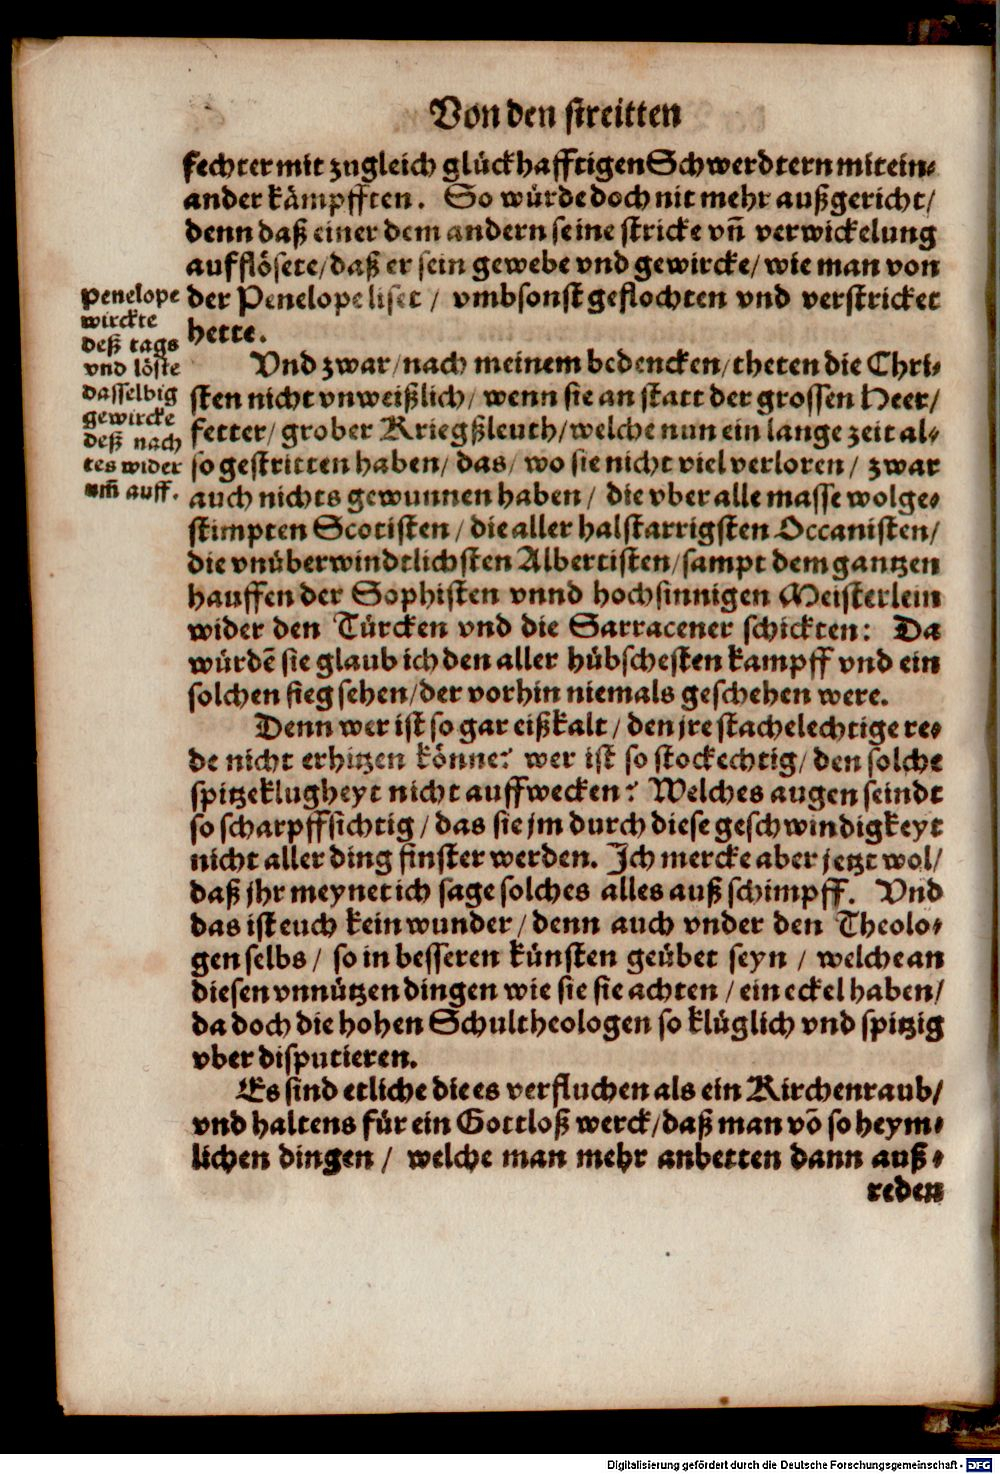 Von den streitten
fechter mit zugleich glückhafftigen Schwerdtern mitein⸗
ander kämpfften. So würde doch nit mehr außgericht/
denn daß einer dem andern seine stricke vñ verwickelung
aufflösete/ daß er sein gewebe vnd gewircke/ wie man von
der Penelope liset/ vmbsonst geflochten vnd verstricket
hette.
Penelope
wirckte
deß tags
vnd löste
dasselbig
gewircke
deß nach
tes wider
vm̃ auff.
Vnd zwar/ nach meinem bedencken/ theten die Chri⸗
sten nicht vnweißlich/ wenn sie an statt der grossen Heer/
fetter/ grober Kriegßleuth/ welche nun ein lange zeit al⸗
so gestritten haben/ das/ wo sie nicht viel verloren/ zwar
auch nichts gewunnen haben/ die vber alle masse wolge⸗
stimpten Scotisten/ die aller halstarrigsten Occanisten/
die vnüberwindtlichsten Albertisten/ sampt dem gantzen
hauffen der Sophisten vnnd hochsinnigen Meisterlein
wider den Türcken vnd die Sarracener schickten: Da
würdẽ sie glaub ich den aller hübschesten kampff vnd ein
solchen sieg sehen/ der vorhin niemals geschehen were.
Denn wer ist so gar eißkalt/ den jre stachelechtige re⸗
de nicht erhitzen könne? wer ist so stockechtig/ den solche
spitzeklugheyt nicht auffwecken? Welches augen seindt
so scharpffsichtig/ das sie jm durch diese geschwindigkeyt
nicht aller ding finster werden. Ich mercke aber jetzt wol/
daß jhr meynet ich sage solches alles auß schimpff. Vnd
das ist euch kein wunder/ denn auch vnder den Theolo⸗
gen selbs/ so in besseren künsten geübet seyn/ welche an
diesen vnnützen dingen wie sie sie achten/ ein eckel haben/
da doch die hohen Schultheologen so klüglich vnd spitzig
vber disputieren.
Es sind etliche die es verfluchen als ein Kirchenraub/
vnd haltens für ein Gottloß werck/ daß man võ so heym⸗
lichen dingen/ welche man mehr anbetten dann auß⸗
reden
Digitalisierung gefördert durch die Deutsche Forschungsgemeinschaft - DFG